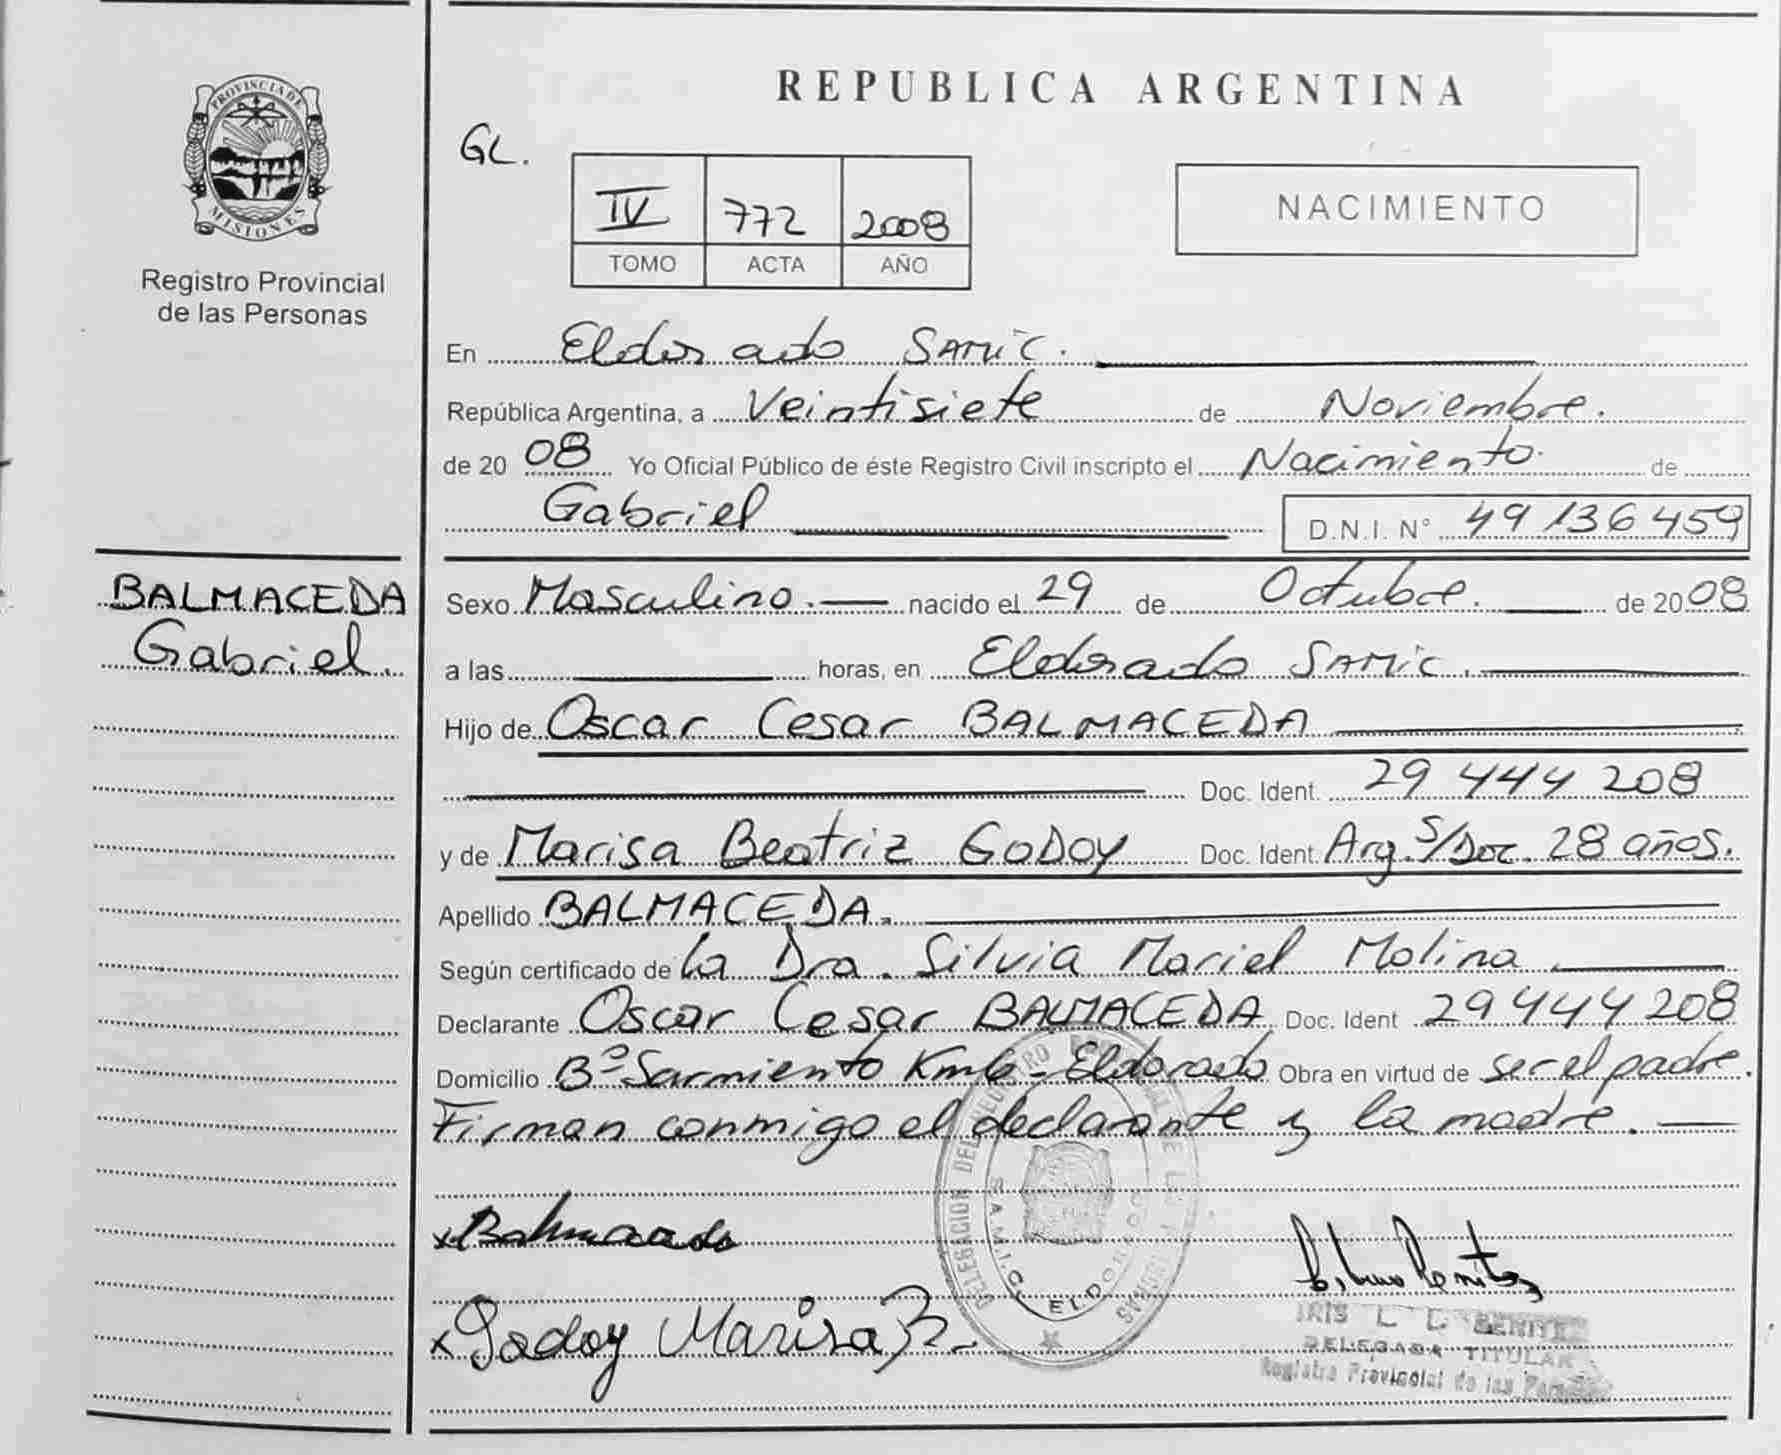 PROVINCIA DE
MISIONES
Registro Provincial
de las Personas
BALMACEDA
Gabriel.
REPUBLICA ARGENTINA
GL.
IV 772 2008
TOMO ACTA AÑO
NACIMIENTO
En Eldorado SAMIC.
República Argentina, a Veintisiete de Noviembre.
de 20 08 Yo Oficial Público de éste Registro Civil inscripto el Nacimiento de
Gabriel D.N.I. N° 49 136 459
Sexo Masculino. nacido el 29 de Octubre. de 20 08
a las horas, en Eldorado SAMIC.
Hijo de Oscar Cesar BALMACEDA
Doc. Ident. 29 444 208
y de Marisa Beatriz GODOY Doc. Ident. Arg. S/Doc. 28 años.
Apellido BALMACEDA.
Según certificado de la Dra. Silvia Mariel Molina.
Declarante Oscar Cesar BALMACEDA Doc. Ident 29 444 208
Domicilio B° Sarmiento Km 6 - Eldorado Obra en virtud de ser el padre.
Firman conmigo el declarante y la madre.
x Balmaceda
x Godoy Marisa B.
DELEGACION DEL
S.A.M.I.C. ELDORADO
IRIS L. BENITEZ
DELEGADA TITULAR
Registro Provincial de las Personas